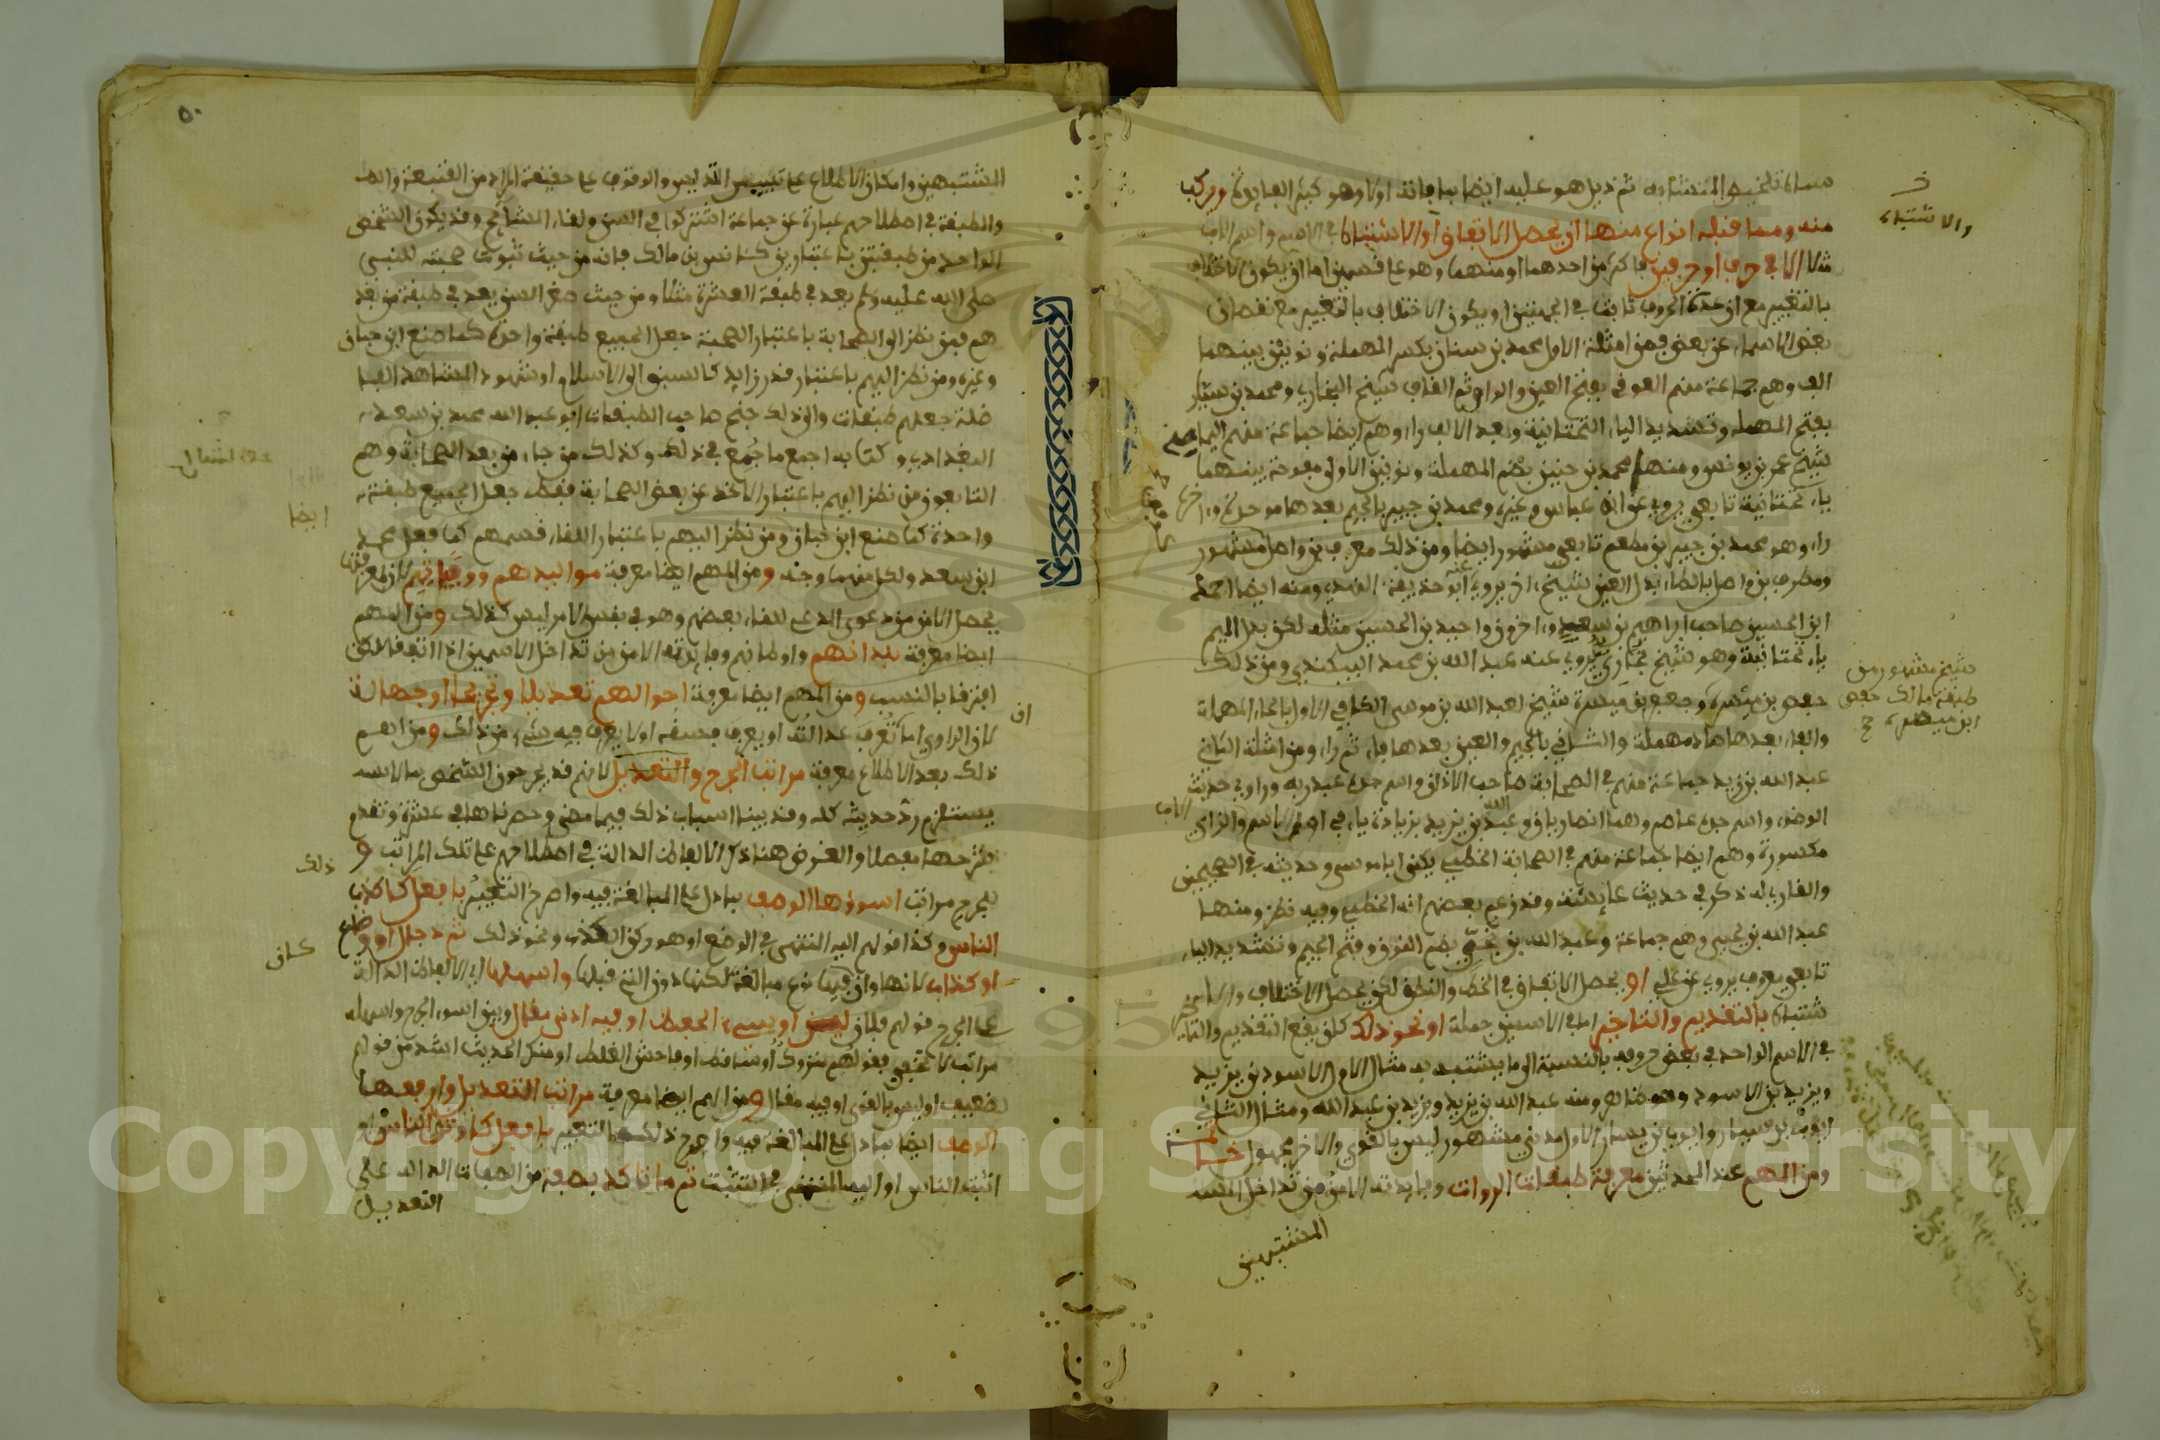 سماه تلخيص المتشابه ثم ذيل هو عليه ايضا بما فاته اولا وهو كثير الفايدة ويركب
منه ومما قبله انواع منها ان يحصل الاتفاق او الاشتباه في الاسم واسم الاب
مثلا الا في حرف او حرفين فاكثر من احدهما او منهما وهو على قسمين اما ان يكون الاختلاف
بالتغيير مع ان عدة الحروف ثابت في الجهتين او يكون الاختلاف بالتغيير مع نقصان
بعض الاسماء عن بعض فمن امثلة الاول محمد بن سنان بكسر المهملة ونونين بينهما
الف وهم جماعة منهم العوقي بفتح العين والواو ثم القاف شيخ البخاري ومحمد بن سيار
بفتح المهملة وتشديد الياء التحتانية وبعد الالف راء وهم ايضا جماعة منهم اليمامي
شيخ عمر بن يونس ومنها محمد بن حنين بضم المهملة ونونين الاولى مفتوحة بينهما
ياء تحتانية تابعي يروي عن ابن عباس وغيره ومحمد بن جبير بالجيم بعدها موحدة واخره
راء وهو محمد بن جبير بن مطعم تابعي مشهور ايضا ومن ذلك معرف بن واصل مشهور
ومطرف بن واصل بالطاء بدل العين شيخ اخر يروي عنه ابو حذيفة النهدي ومنه ايضا احمد
ابن الحسين صاحب ابراهيم بن سعيد واخرون واحيد بن الحسين مثله لكن بدل الميم
ياء تحتانية وهو شيخ بخاري يروي عنه عبد الله بن محمد البيكندي ومن ذلك
حفص بن ميسرة وجعفر بن ميسرة شيخ لعبد الله بن موسى الكوفي الاول بالحاء المهملة
والفاء بعدها صاد مهملة والثاني بالجيم والعين بعدها فاء ثم راء ومن امثلة الثاني
عبد الله بن زيد جماعة منهم في الصحابة صاحب الاذان واسم جده عبد ربه وراوي حديث
الوضوء واسم جده عاصم وهما انصاريان وعبد الله بن يزيد بزيادة ياء في اول اسم الاب والزاي
مكسورة وهم ايضا جماعة منهم في الصحابة الخطمي يكنى ابا موسى وحديثه في الصحيحين
والقاري له ذكر في حديث عايشة وقد زعم بعضهم انه الخطمي وفيه نظر ومنها
عبد الله بن يحيى وهم جماعة وعبد الله بن نجي بضم النون وفتح الجيم وتشديد الياء
تابعي معروف يروي عن علي او يحصل الاتفاق في الخط والنطق لكن يحصل الاختلاف والا
شتباه بالتقديم والتاخير اما في الاسمين جملة او نحو ذلك كان يقع التقديم والتاخير
في الاسم الواحد في بعض حروفه بالنسبة الى ما يشتبه به مثال الاول الاسود بن يزيد
ويزيد بن الاسود وهو ظاهر ومنه عبد الله بن يزيد ويزيد بن عبد الله ومثال الثاني
ايوب بن سيار وايوب بن يسار الاول مدني مشهور ليس بالقوي والاخر مجهول خاتمة
ومن المهم عند المحدثين معرفة طبقات الرواة وفايدته الامن من تداخل المشتبهين
المشتبهين
والاشتباه
شيخ مشهور من
طبقة مالك حفص
ابن ميسرة
٥٠
المشتبهين وامكان الاطلاع على تبيين التدليس والوقوف على حقيقة المراد من العنعنة
والطبقة في اصطلاحهم عبارة عن جماعة اشتركوا في السن ولقاء المشايخ وقد يكون الشخص
الواحد من طبقتين باعتبارين كانس بن مالك فانه من حيث ثبوت صحبته للنبي
صلى الله عليه وسلم يعد في طبقة العشرة مثلا ومن حيث صغر السن يعد في طبقة من بعد
هم فمن نظر الى الصحابة باعتبار الصحبة جعل الجميع طبقة واحدة كما صنع ابن حبان
وغيره ومن نظر اليهم باعتبار قدر زايد كالسبق الى الاسلام او شهود المشاهد الفا
ضلة جعلهم طبقات والى ذلك جنح صاحب الطبقات ابو عبد الله محمد بن سعد
البغدادي وكتابه اجمع ما جمع في ذلك وكذلك من جاء من بعد الصحابة وهم
التابعون من نظر اليهم باعتبار الاخذ عن بعض الصحابة فقط جعل الجميع طبقة
واحدة كما صنع ابن حبان ومن نظر اليهم باعتبار اللقاء قسمهم كما فعل محمد
ابن سعد ولكل منهما وجه ومن المهم ايضا معرفة مواليدهم ووفياتهم لان بمعرفتها
يحصل الامن من دعوى المدعي للقاء بعضهم وهو في نفس الامر ليس كذلك ومن المهم
ايضا معرفة بلدانهم واوطانهم وفايدته الامن من تداخل الاسمين اذا اتفقا لكن
افترقا بالنسب ومن المهم ايضا معرفة احوالهم تعديلا وتجريحا او جهالة
لان الراوي اما تعرف عدالته او يعرف فسقه او لا يعرف فيه شيء من ذلك ومن اهم
ذلك بعد الاطلاع معرفة مراتب الجرح والتعديل لانهم قد يجرحون الشخص بما لا
يستلزم رد حديثه كله وقد بينا اسباب ذلك فيما مضى وحصرناها في عشرة وتقدم
شرحها مفصلا والغرض هنا ذكر الالفاظ الدالة في اصطلاحهم على تلك المراتب و
للجرح مراتب اسوؤها الوصف بما دل على المبالغة فيه واصرح التعبير بافعل كاكذب
الناس وكذا قولهم اليه المنتهى في الوضع او هو ركن الكذب ونحو ذلك ثم دجال او وضاع
او كذاب لانها وان كان فيها نوع مبالغة لكنها دون التي قبلها واسهلها اي الالفاظ الدالة
على الجرح قولهم فلان لين او سيء الحفظ او فيه ادنى مقال وبين اسوء الجرح واسهله
مراتب لا تخفى فقولهم متروك او ساقط او فاحش الغلط او منكر الحديث اشد من قولهم
ضعيف او ليس بالقوي او فيه مقال ومن المهم ايضا معرفة مراتب التعديل وارفعها
الوصف ايضا بما دل على المبالغة فيه واصرح ذلك التعبير بافعل كاوثق الناس او
اثبت الناس او اليه المنتهى في التثبت ثم ما تاكد بصفة من الصفات الدالة على
التعديل
ايضا
ان
ذلك
كان
Copyright © King Saud University
1957